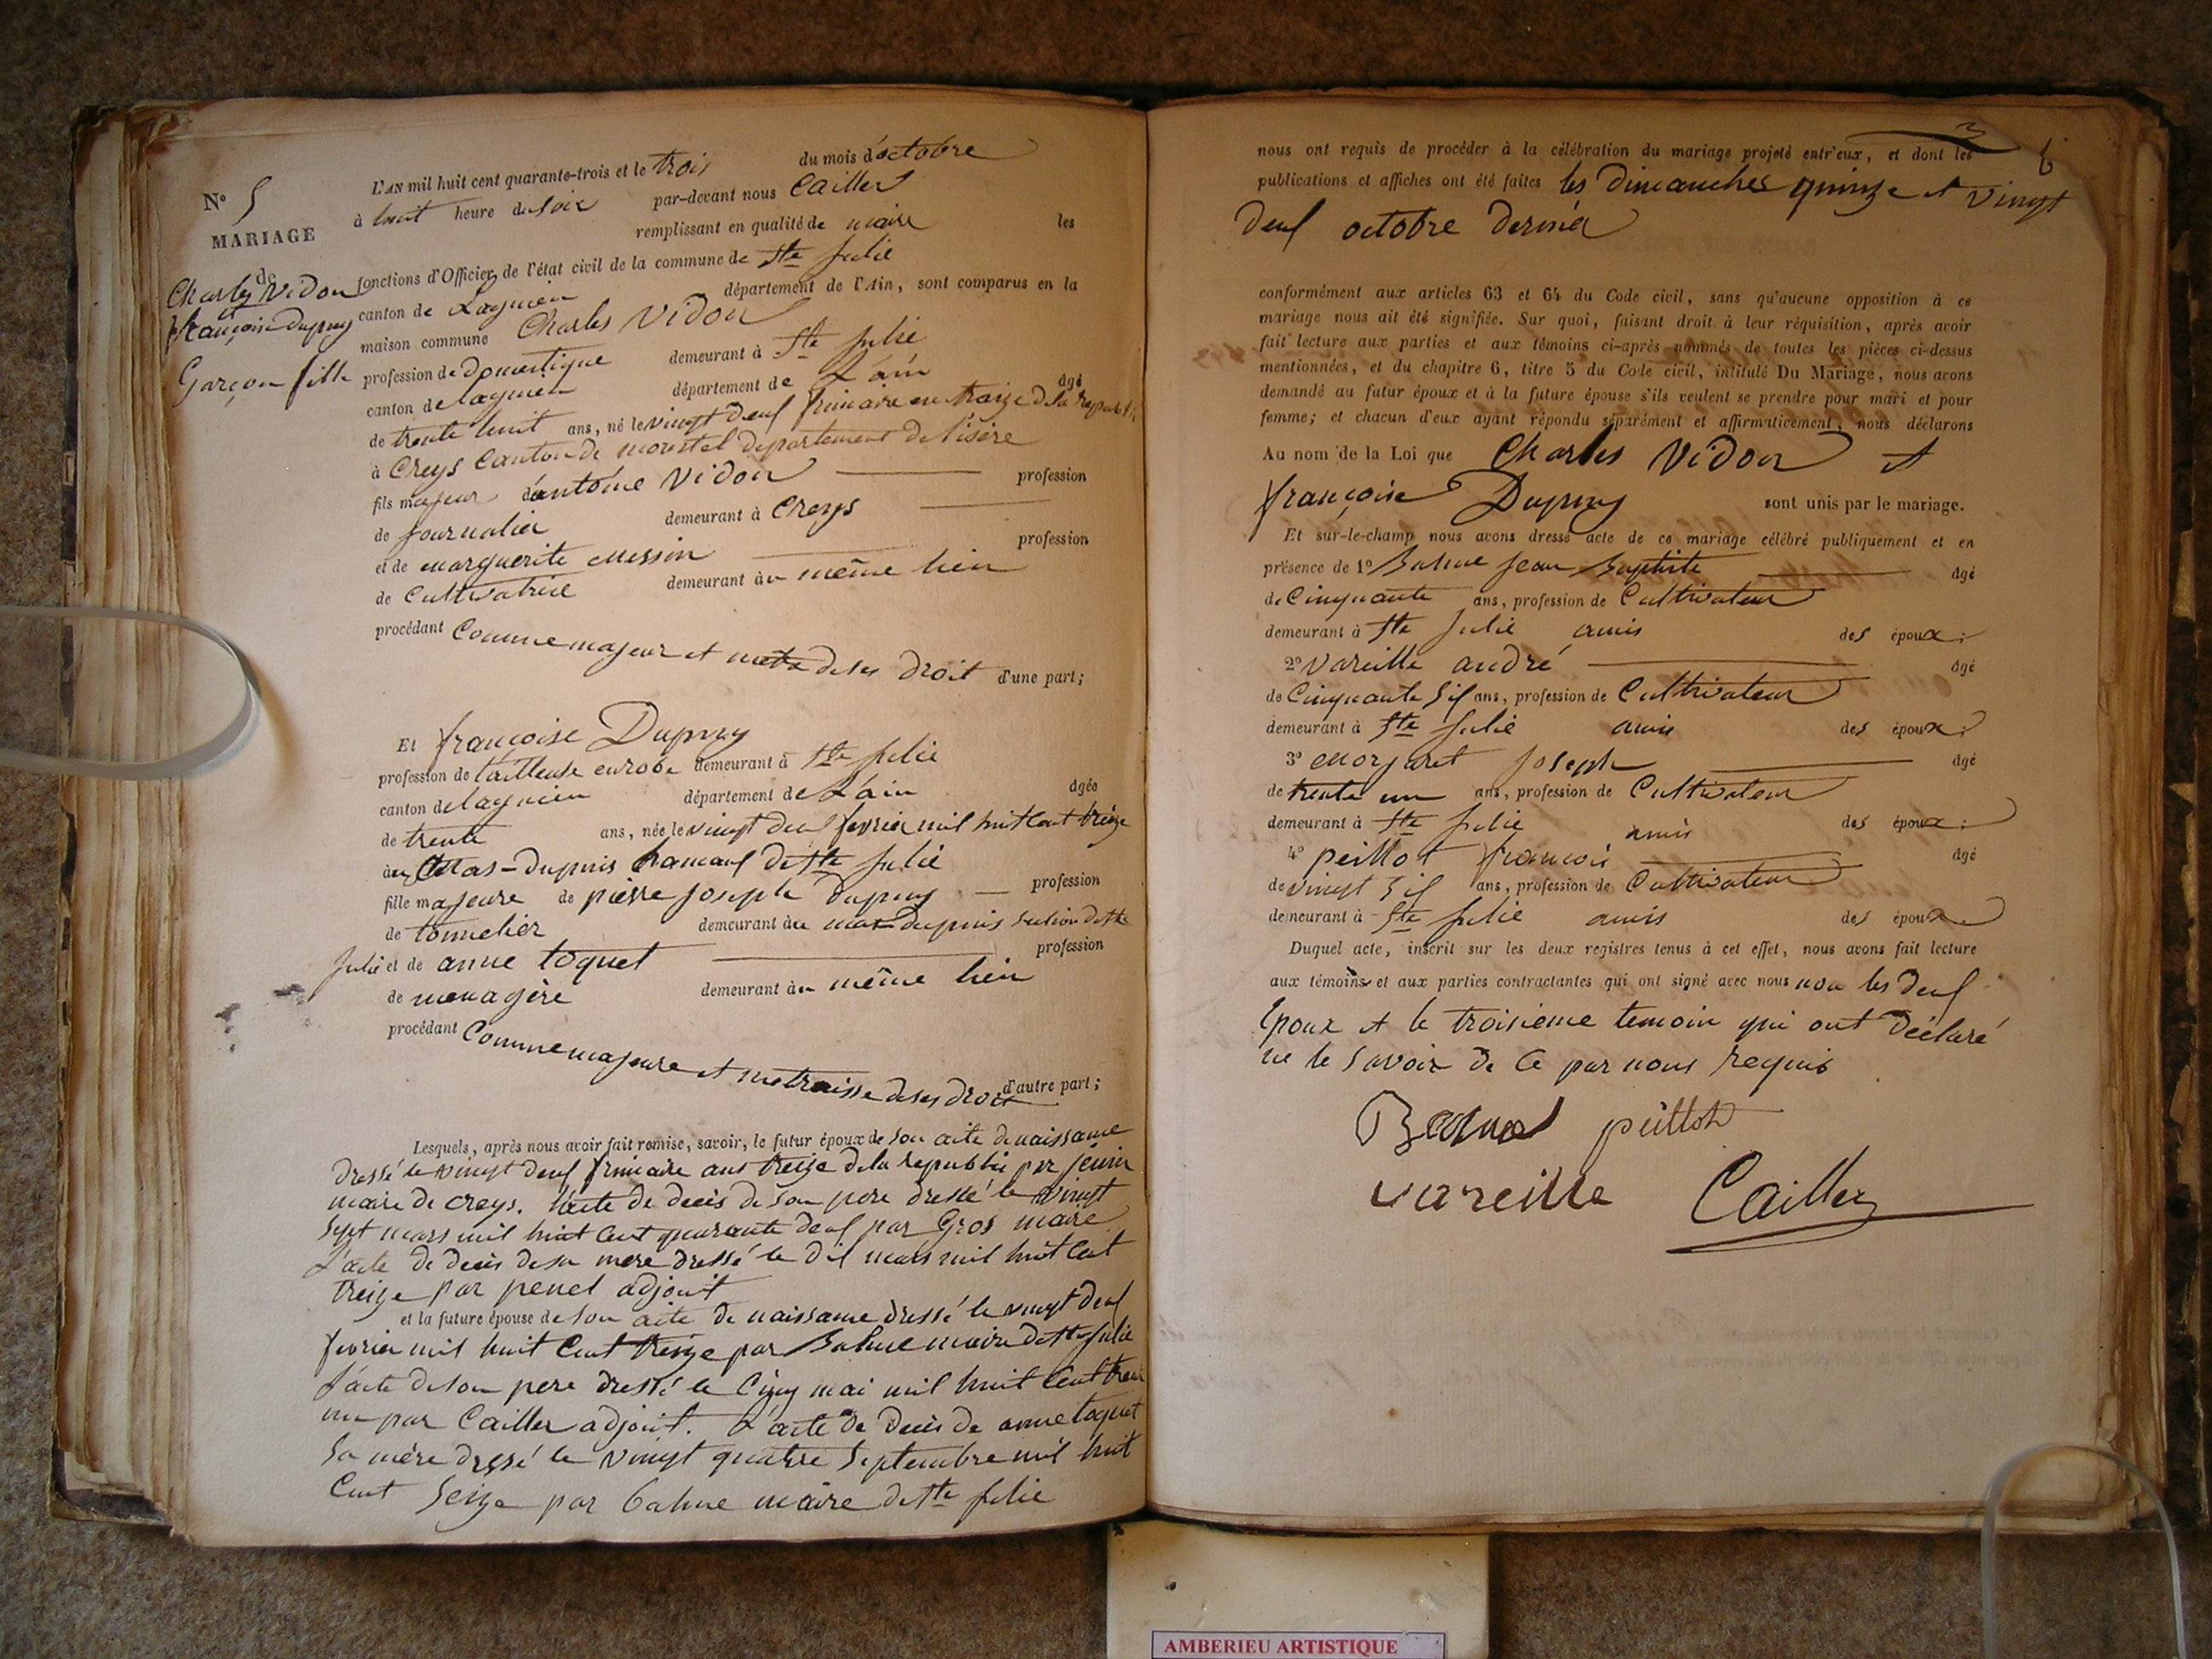 N° 5
MARIAGE
de
Charles Vidon
et
françoise Dupuy
Garçon fille
L'AN mil huit cent quarante-trois et le trois du mois d'octobre
à huit heure du soir par-devant nous Cailler
remplissant en qualité de maire les
fonctions d'Officier de l'état civil de la commune de Ste julie
canton de Lagnieu département de l'Ain, sont comparus en la
maison commune Charles Vidon
profession de Domestique demeurant à Ste julie
canton de lagnieu département de L'ain âgé
de trente huit ans, né le vingt deux frimaire an treize de la republi
à Creys Canton de morestel departement de l'isère
fils majeur d'antoine Vidon profession
de journalier demeurant à Creys
et de marguerite profession
de Cultivatrice demeurant au même lieu
procédant Comme majeur et de ses droit d'une part;
Et françoise Dupuy
profession de tailleuse en robe demeurant à Ste julie
canton de lagnieu département de L'ain âgée
de trente ans, née le vingt deux fevrier mil huit Cent treize
au Mas-Dupuis hamaux de Ste julie
fille majeure de pierre joseph Dupuy profession
de tonnelier demeurant au mas-dupuis section de Ste
julie et de anne toquet profession
de menagère demeurant au même lieu
procédant Comme majeure et metraisse de ses droit d'autre part;
Lesquels, après nous avoir fait remise, savoir, le futur époux de son acte de naissance
dressé le vingt deux frimaire ans treize de la republic par
maire de creys. L'acte de deces de son pere dressé le vingt
sept mars mil huit Cent quarante deux par Gros maire
L'acte de deces de sa mere dressé le dix mars mil huit Cent
treize par penet adjoint
et la future épouse de son acte de naissance dressé le vingt deux
fevrier mil huit Cent treize par Bahue maire de Ste julie
L'acte de son pere dressé le Cinq mai mil huit Cent trent
un par Cailler adjoint. L'acte de deces de anne toquet
sa mère dressé le vingt quatre Septembre mil huit
Cent Seize par bahue maire de Ste julie
nous ont requis de procéder à la célébration du mariage projeté entr'eux, et dont les
publications et affiches ont été faites les Dimanches quinze et vingt
deux octobre dernier
conformément aux articles 63 et 64 du Code civil, sans qu'aucune opposition à ce
mariage nous ait été signifiée. Sur quoi, faisant droit à leur réquisition, après avoir
fait lecture aux parties et aux témoins ci-après nommés de toutes les pièces ci-dessus
mentionnées, et du chapitre 6, titre 5 du Code civil, intitulé Du Mariage, nous avons
demandé au futur époux et à la future épouse s'ils veulent se prendre pour mari et pour
femme; et chacun d'eux ayant répondu séparément et affirmativement, nous déclarons
Au nom de la Loi que Charles Vidon et
françoise Dupuy sont unis par le mariage.
Et sur-le-champ nous avons dressé acte de ce mariage célébré publiquement et en
présence de 1° Bahue jean Baptiste âgé
de Cinquante ans, profession de Cultivateur
demeurant à Ste julie amis des époux;
2° Vareille andré âgé
de Cinquante Six ans, profession de Cultivateur
demeurant à Ste julie amis des époux;
3° Morgaret joseph âgé
de trente un ans, profession de Cultivateur
demeurant à Ste julie amis des époux;
4° peillot françois âgé
de vingt Six ans, profession de Cultivateur
demeurant à Ste julie amis des époux
Duquel acte, inscrit sur les deux registres tenus à cet effet, nous avons fait lecture
aux témoins et aux parties contractantes qui ont signé avec nous non les deux
Epoux et le troisième temoin qui ont déclaré
ne le savoir de Ce par nous requis
peillot
vareille Cailler
AMBERIEU ARTISTIQUE